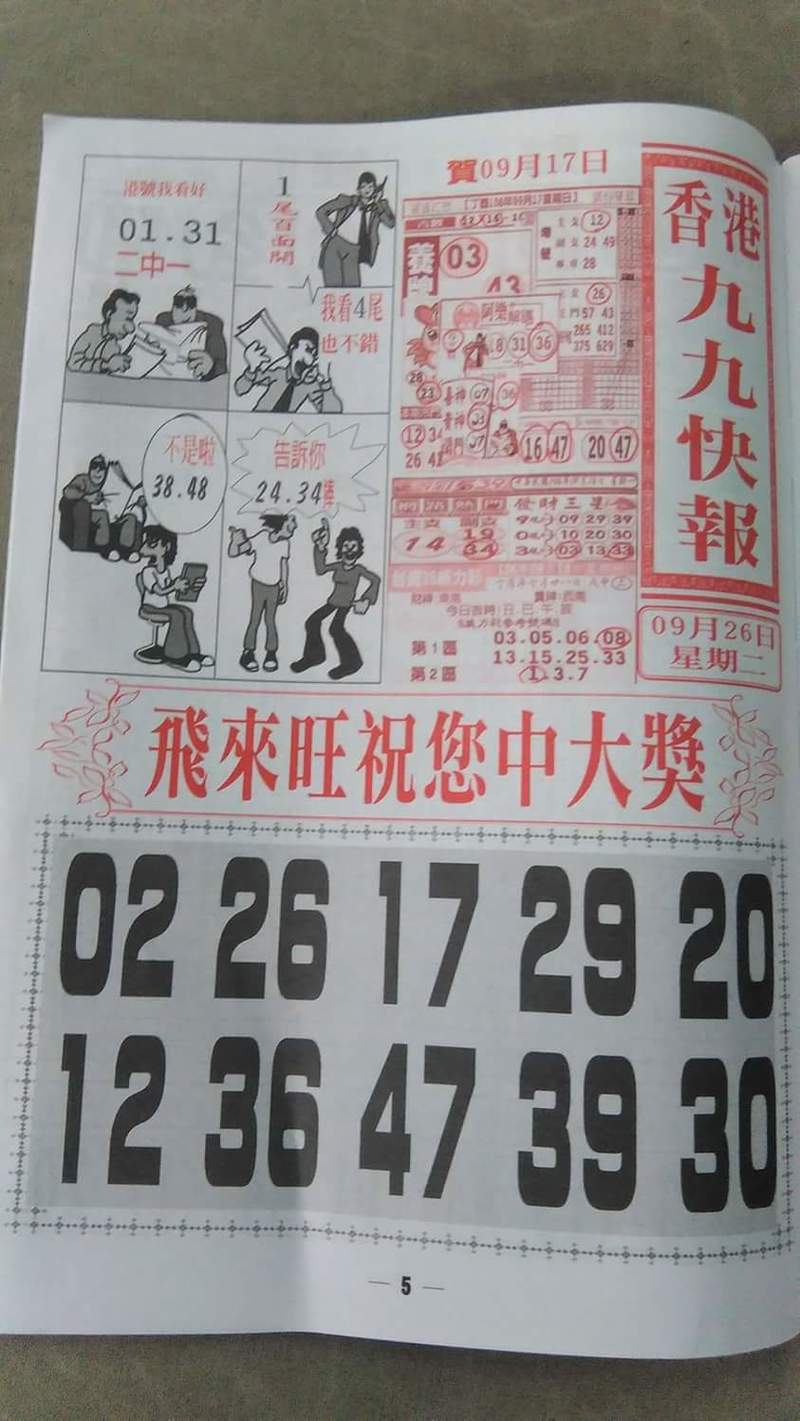 賀09月17日
香港九九快報
09月26日
星期二
港號我看好
01.31
二中一
1尾百面開
我看4尾
也不錯
不是啦
38.48
告訴你
24.34準
養牌
03
43
12
24 49
28
26
57 43
265 412
375 629
8 31 36
28
23
07
36
12 34
26 42
16 47
20 47
發財三星
主支
14
19
34
09 29 39
10 20 30
03 13 33
今日吉時:丑.巳.午.
第1區
03.05.06.08
13.15.25.33
第2區
1.3.7
飛來旺祝您中大獎
02 26 17 29 20
12 36 47 39 30
— 5 —